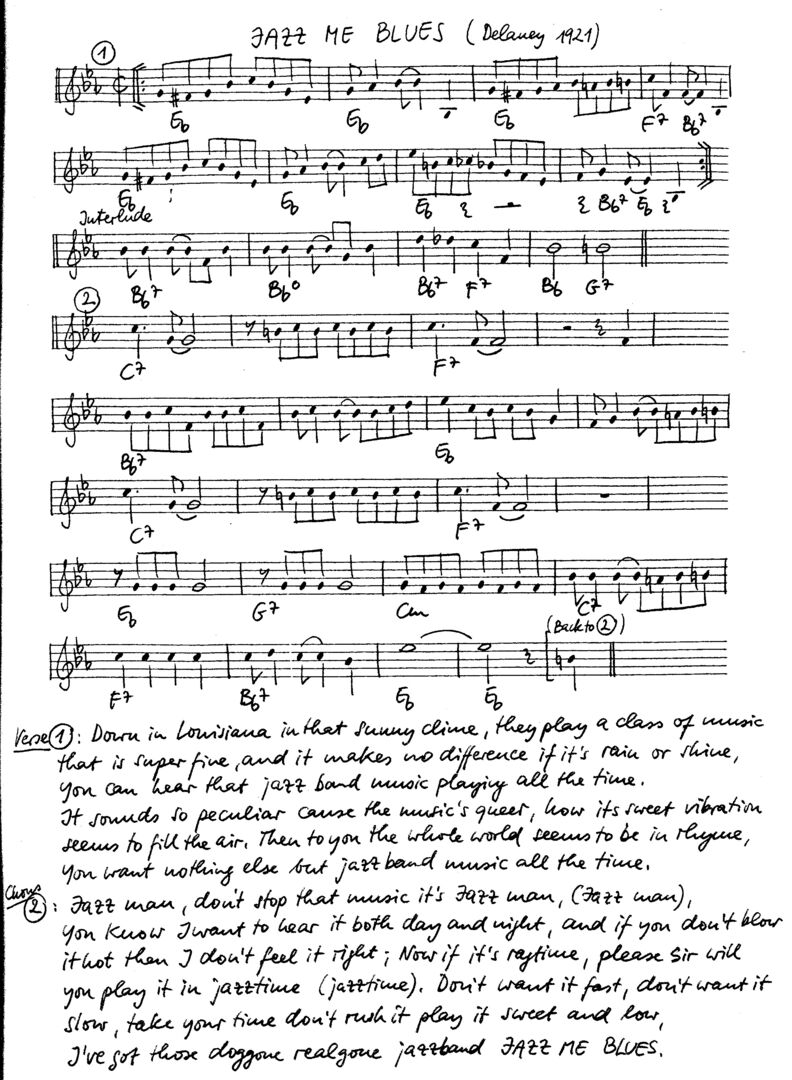 JAZZ ME BLUES (Delaney 1921)
1
Eb Eb Eb F7 Bb7
Eb Eb Eb Bb7 Eb
Interlude
Bb7 Bbo Bb7 F7 Bb G7
2
C7 F7
Bb7 Eb
C7 F7
Eb G7 Cm C7
(Back to 2)
F7 Bb7 Eb Eb
Verse 1: Down in Louisiana in that sunny clime, they play a class of music
that is super fine, and it makes no difference if it's rain or shine,
you can hear that jazz band music playing all the time.
It sounds so peculiar cause the music's queer, how its sweet vibration
seems to fill the air. Then to you the whole world seems to be in rhyme,
you want nothing else but jazzband music all the time.
Chorus
2: Jazz man, don't stop that music it's Jazz man, (Jazz man),
you know I want to hear it both day and night, and if you don't blow
it hot then I don't feel it right; Now if it's ragtime, please Sir will
you play it in jazztime (jazztime). Don't want it fast, don't want it
slow, take your time don't rush it play it sweet and low,
I've got those doggone realgone jazzband JAZZ ME BLUES.